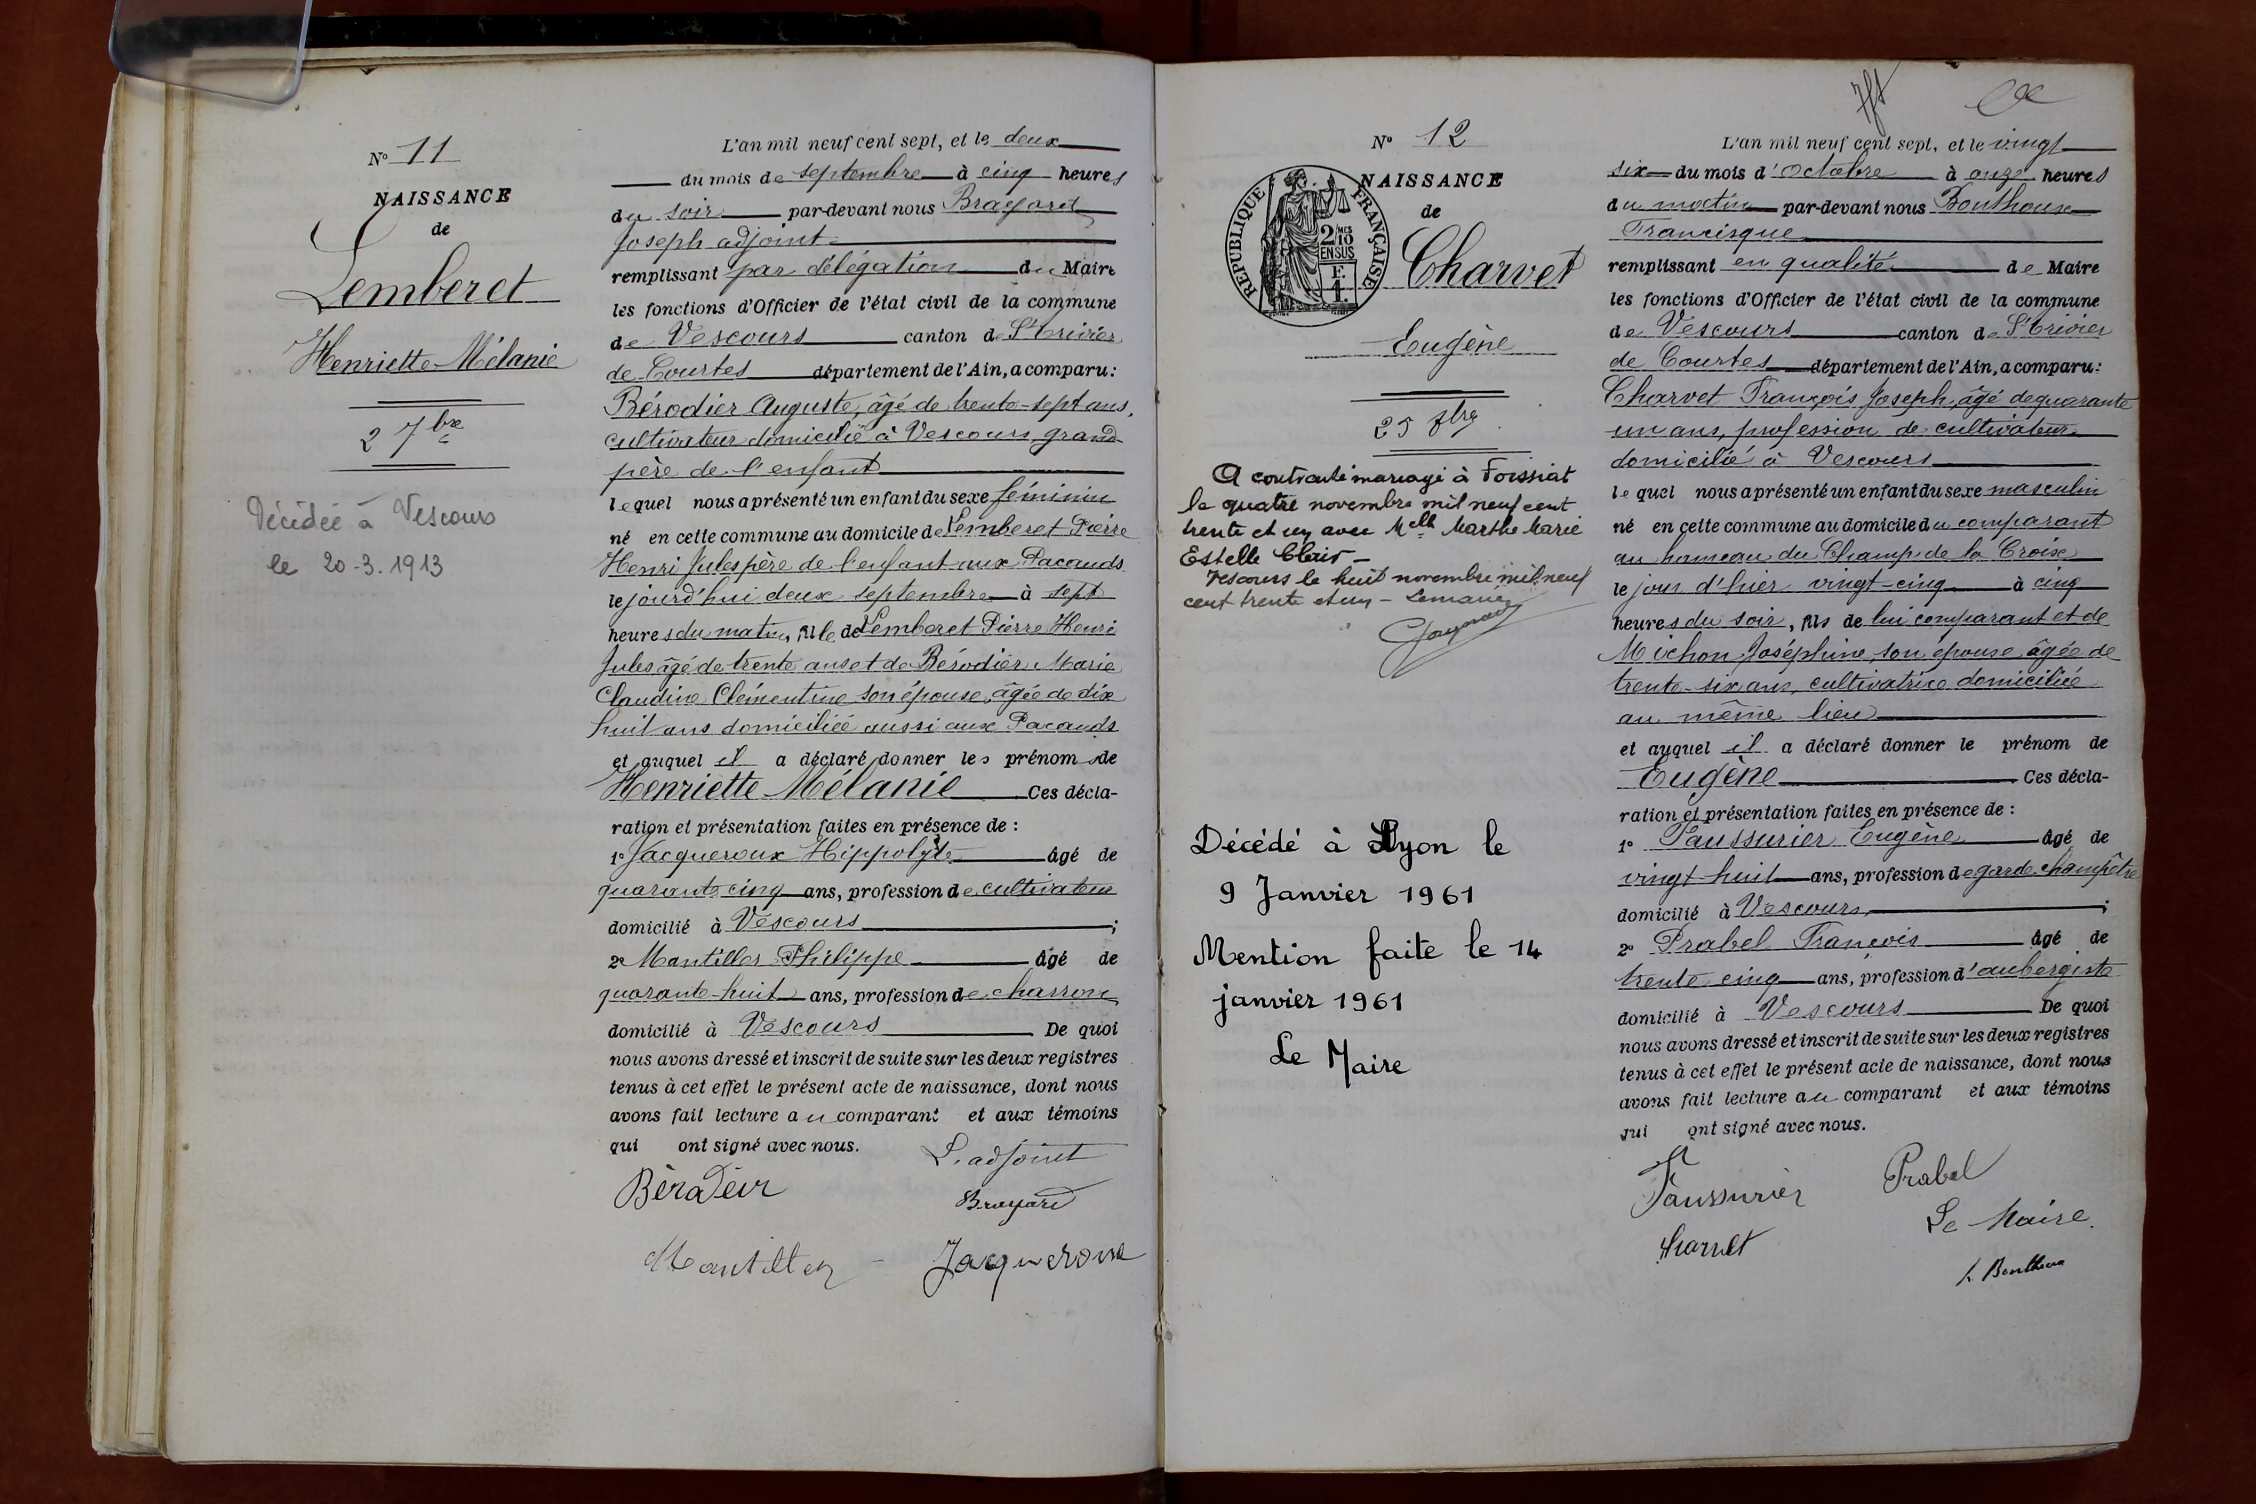 N° 11
NAISSANCE
de
Lemberet
Henriette Mélanie
2 7bre
Décédée à Vescours
le 20-3-1913
L'an mil neuf cent sept, et le deux
du mois de septembre à cinq heures
du soir par-devant nous Brayard
Joseph adjoint
remplissant par délégation du Maire
les fonctions d'Officier de l'état civil de la commune
de Vescours canton de St Trivier
de Courtes département de l'Ain, a comparu:
Bérodier Auguste, âgé de trente-sept ans,
cultivateur domicilié à Vescours grand-
père de l'enfant
lequel nous a présenté un enfant du sexe féminin
né en cette commune au domicile de Lemberet Pierre
Henri Jules père de l'enfant aux Pacauds
le jourd'hui deux septembre à sept
heures du matin, fille de Lemberet Pierre Henri
Jules âgé de trente ans et de Bérodier Marie
Claudine Clémentine son épouse, âgée de dix
huit ans domiciliée aussi aux Pacauds
et auquel il a déclaré donner les prénoms de
Henriette Mélanie Ces décla-
ration et présentation faites en présence de :
1° Jacqueroux Hippolyte âgé de
quarante cinq ans, profession de cultivateur
domicilié à Vescours ;
2° Mantillez Philippe âgé de
quarante-huit ans, profession de charron
domicilié à Vescours De quoi
nous avons dressé et inscrit de suite sur les deux registres
tenus à cet effet le présent acte de naissance, dont nous
avons fait lecture au comparant et aux témoins
qui ont signé avec nous.
L'adjoint
Brayard
Mantillez Jacqueroux
N° 12
NAISSANCE
de
RÉPUBLIQUE FRANÇAISE
2 MES 10 EN SUS
F. 1.
Charvet
Eugène
25 8bre
A contracté mariage à Foissiat
le quatre novembre mil neuf cent
trente et un avec Melle Marthe Marie
Estelle Clair -
Vescours le huit novembre mil neuf
cent trente et un - Le maire
Décédé à Lyon le
9 Janvier 1961
Mention faite le 14
janvier 1961
Le Maire
L'an mil neuf cent sept, et le vingt
six du mois d'octobre à onze heures
du matin par-devant nous Bouthoux
Francisque
remplissant en qualité de Maire
les fonctions d'Officier de l'état civil de la commune
de Vescours canton de St Trivier
de Courtes département de l'Ain, a comparu:
Charvet François Joseph, âgé de quarante
un ans, profession de cultivateur
domicilié à Vescours
lequel nous a présenté un enfant du sexe masculin
né en cette commune au domicile du comparant
au hameau du Champ de la Croix
le jour d'hier vingt-cinq à cinq
heures du soir, fils de lui comparant et de
Michon Joséphine, son épouse âgée de
trente-six ans, cultivatrice domiciliée
au même lieu
et auquel il a déclaré donner le prénom de
Eugène Ces décla-
ration et présentation faites en présence de :
1° Faussurier Eugène âgé de
vingt huit ans, profession de garde champêtre
domicilié à Vescours ;
2° Prabel François âgé de
trente cinq ans, profession d'aubergiste
domicilié à Vescours De quoi
nous avons dressé et inscrit de suite sur les deux registres
tenus à cet effet le présent acte de naissance, dont nous
avons fait lecture au comparant et aux témoins
qui ont signé avec nous.
Faussurier Prabel
Charvet Le Maire.